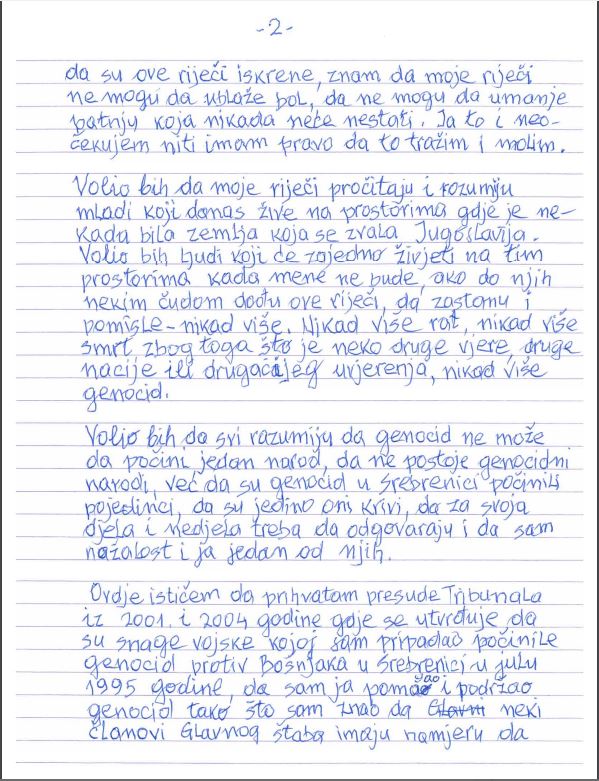 -2-
da su ove riječi iskrene, znam da moje riječi
ne mogu da ublaže bol, da ne mogu da umanje
patnju koja nikada neće nestati. Ja to i neo-
čekujem niti imam pravo da to tražim i molim.
Volio bih da moje riječi pročitaju i razumiju
mladi koji danas žive na prostorima gdje je ne-
kada bila zemlja koja se zvala Jugoslavija.
Volio bih ljudi koji će zajedno živjeti na tim
prostorima kada mene ne bude, ako do njih
nekim čudom dođu ove riječi, da zastanu i
pomisle - nikad više. Nikad više rat, nikad više
smrt zbog toga što je neko druge vjere, druge
nacije ili drugačijeg uvjerenja, nikad više
genocid.
Volio bih da svi razumiju da genocid ne može
da počini jedan narod, da ne postoje genocidni
narodi, već da su genocid u Srebrenici počinili
pojedinci, da su jedino oni krivi, da za svoja
djela i nedjela treba da odgovaraju i da sam
nažalost i ja jedan od njih.
Ovdje ističem da prihvatam presude Tribunala
iz 2001. i 2004 godine gdje se utvrđuje da
su snage vojske kojoj sam pripadao počinile
genocid protiv Bošnjaka u Srebrenici u julu
1995 godine, da sam ja pomagao i podržao
genocid tako što sam znao da Glavni neki
članovi Glavnog štaba imaju namjeru da